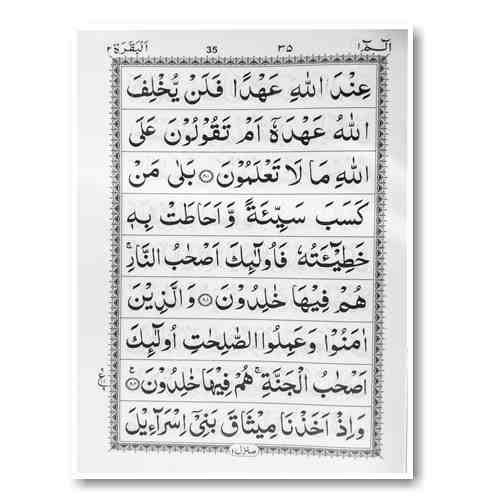 الٓمّٓ ١ ٣٥ 35 اَلْبَقَرَة ٢
عِنْدَ اللّٰهِ عَهْدًا فَلَنْ يُّخْلِفَ
اللّٰهُ عَهْدَهٗٓ اَمْ تَقُوْلُوْنَ عَلَى
اللّٰهِ مَا لَا تَعْلَمُوْنَ ﴿٨٠﴾ بَلٰى مَنْ
كَسَبَ سَيِّئَةً وَّ اَحَاطَتْ بِهٖ
خَطِيْٓئَتُهٗ فَاُولٰٓئِكَ اَصْحٰبُ النَّارِ ۚ
هُمْ فِيْهَا خٰلِدُوْنَ ﴿٨١﴾ وَ الَّذِيْنَ
اٰمَنُوْا وَ عَمِلُوا الصّٰلِحٰتِ اُولٰٓئِكَ
اَصْحٰبُ الْجَنَّةِ ۚ هُمْ فِيْهَا خٰلِدُوْنَ ﴿٨٢﴾
وَ اِذْ اَخَذْنَا مِيْثَاقَ بَنِيْٓ اِسْرَآءِيْلَ
منزل ١